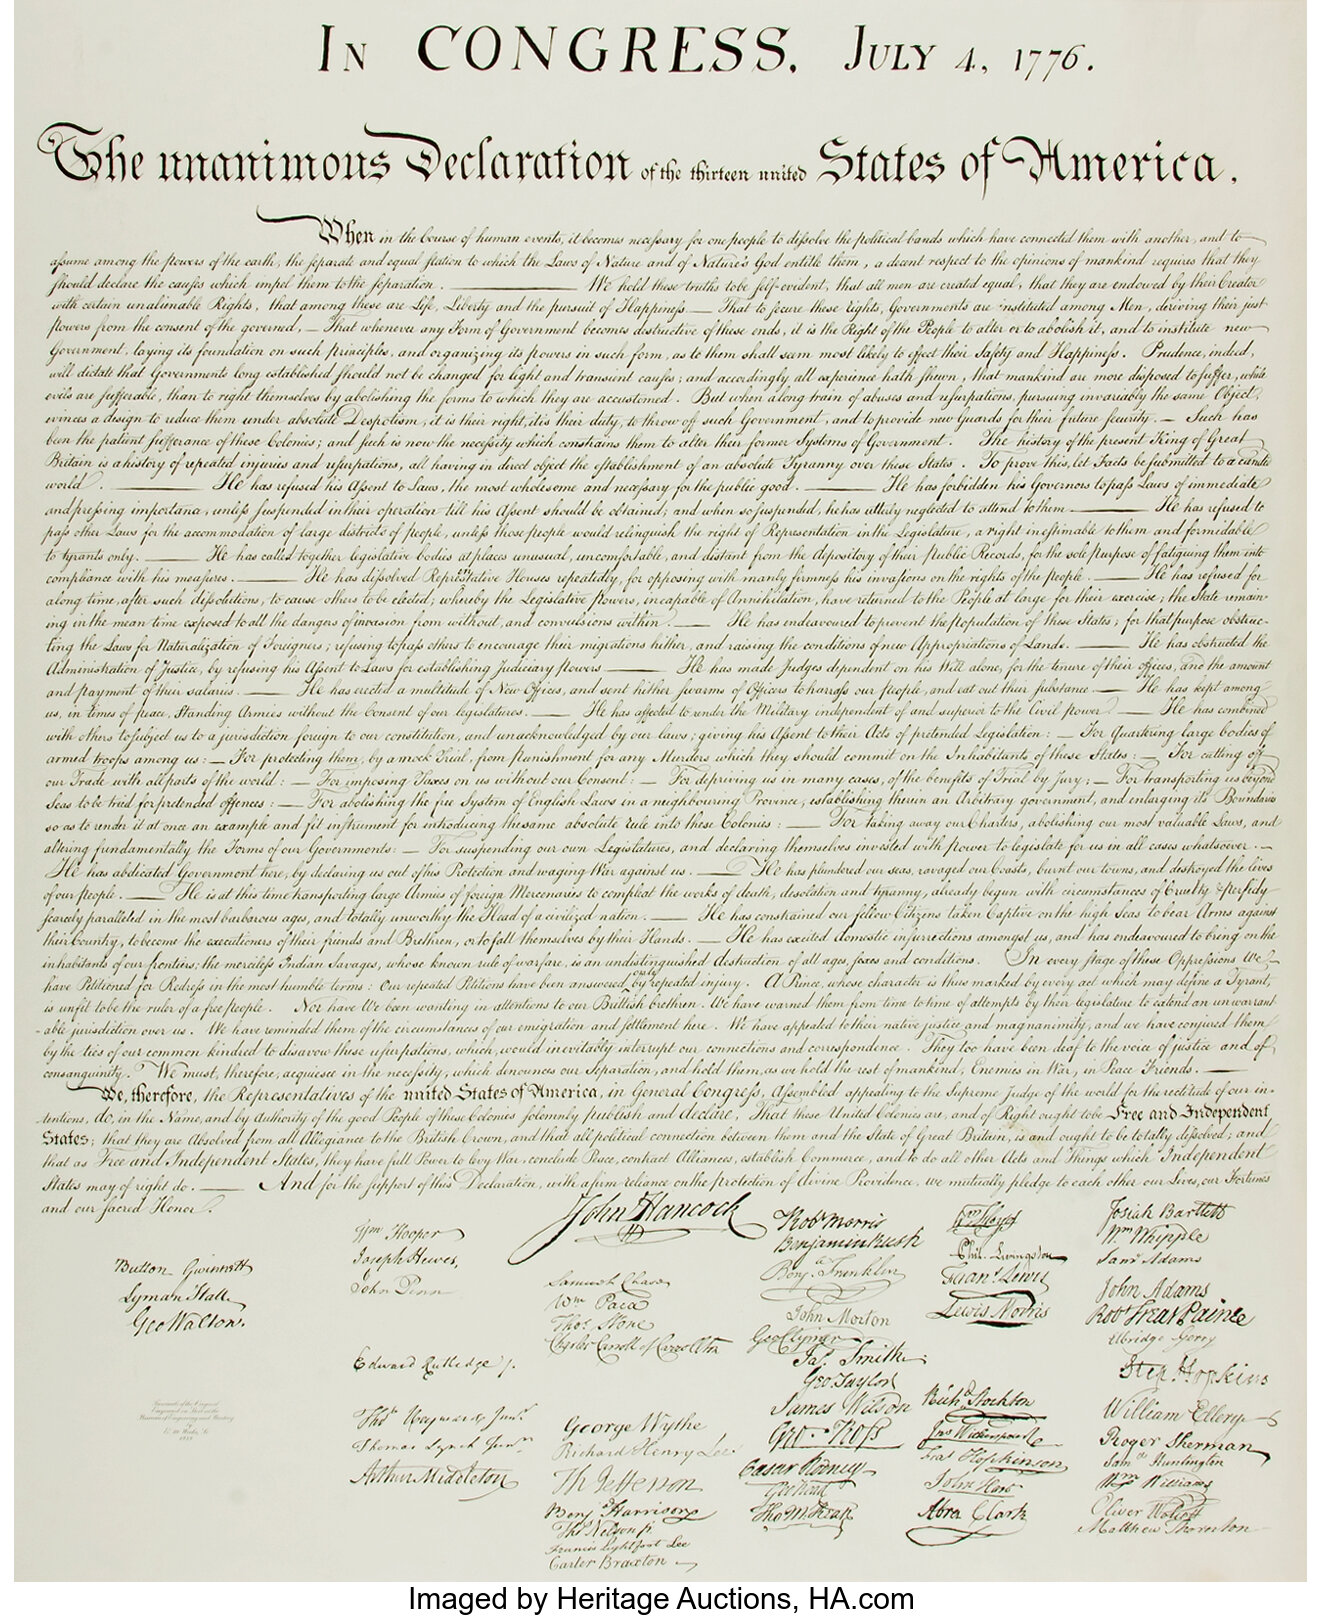 In CONGRESS, July 4, 1776.
The unanimous Declaration of the thirteen united States of America,
When in the Course of human events, it becomes necessary for one people to dissolve the political bands which have connected them with another, and to
assume among the powers of the earth, the separate and equal station to which the Laws of Nature and of Nature's God entitle them, a decent respect to the opinions of mankind requires that they
should declare the causes which impel them to the separation. — We hold these truths to be self-evident, that all men are created equal, that they are endowed by their Creator
with certain unalienable Rights, that among these are Life, Liberty and the pursuit of Happiness. — That to secure these rights, Governments are instituted among Men, deriving their just
powers from the consent of the governed, — That whenever any Form of Government becomes destructive of these ends, it is the Right of the People to alter or to abolish it, and to institute new
Government, laying its foundation on such principles, and organizing its powers in such form, as to them shall seem most likely to effect their Safety and Happiness. Prudence, indeed,
will dictate that Governments long established should not be changed for light and transient causes; and accordingly all experience hath shewn, that mankind are more disposed to suffer, while
evils are sufferable, than to right themselves by abolishing the forms to which they are accustomed. But when a long train of abuses and usurpations, pursuing invariably the same Object,
evinces a design to reduce them under absolute Despotism, it is their right, it is their duty, to throw off such Government, and to provide new Guards for their future security. — Such has
been the patient sufferance of these Colonies; and such is now the necessity which constrains them to alter their former Systems of Government. The history of the present King of Great
Britain is a history of repeated injuries and usurpations, all having in direct object the establishment of an absolute Tyranny over these States. To prove this, let Facts be submitted to a candid
world. — He has refused his Assent to Laws, the most wholesome and necessary for the public good. — He has forbidden his Governors to pass Laws of immediate
and pressing importance, unless suspended in their operation till his Assent should be obtained; and when so suspended, he has utterly neglected to attend to them. — He has refused to
pass other Laws for the accommodation of large districts of people, unless those people would relinquish the right of Representation in the Legislature, a right inestimable to them and formidable
to tyrants only. — He has called together legislative bodies at places unusual, uncomfortable, and distant from the depository of their public Records, for the sole purpose of fatiguing them into
compliance with his measures. — He has dissolved Representative Houses repeatedly, for opposing with manly firmness his invasions on the rights of the people. — He has refused for
a long time, after such dissolutions, to cause others to be elected; whereby the Legislative powers, incapable of Annihilation, have returned to the People at large for their exercise; the State remain-
ing in the mean time exposed to all the dangers of invasion from without, and convulsions within. — He has endeavoured to prevent the population of these States; for that purpose obstruc-
ting the Laws for Naturalization of Foreigners; refusing to pass others to encourage their migrations hither, and raising the conditions of new Appropriations of Lands. — He has obstructed the
Administration of Justice, by refusing his Assent to Laws for establishing Judiciary powers — He has made Judges dependent on his Will alone, for the tenure of their offices, and the amount
and payment of their salaries. — He has erected a multitude of New Offices, and sent hither swarms of Officers to harrass our people, and eat out their substance. — He has kept among
us, in times of peace, Standing Armies without the Consent of our legislatures. — He has affected to render the Military independent of and superior to the Civil power. — He has combined
with others to subject us to a jurisdiction foreign to our constitution, and unacknowledged by our laws; giving his Assent to their Acts of pretended Legislation: — For Quartering large bodies of
armed troops among us: — For protecting them, by a mock Trial, from punishment for any Murders which they should commit on the Inhabitants of these States: — For cutting off
our Trade with all parts of the world: — For imposing Taxes on us without our Consent: — For depriving us in many cases, of the benefits of Trial by Jury: — For transporting us beyond
Seas to be tried for pretended offences: — For abolishing the free System of English Laws in a neighbouring Province, establishing therein an Arbitrary government, and enlarging its Boundaries
so as to render it at once an example and fit instrument for introducing the same absolute rule into these Colonies: — For taking away our Charters, abolishing our most valuable Laws, and
altering fundamentally the Forms of our Governments: — For suspending our own Legislatures, and declaring themselves invested with power to legislate for us in all cases whatsoever. —
He has abdicated Government here, by declaring us out of his Protection and waging War against us. — He has plundered our seas, ravaged our Coasts, burnt our towns, and destroyed the lives
of our people. — He is at this time transporting large Armies of foreign Mercenaries to compleat the works of death, desolation and tyranny, already begun with circumstances of Cruelty & perfidy
scarcely paralleled in the most barbarous ages, and totally unworthy the Head of a civilized nation. — He has constrained our fellow Citizens taken Captive on the high Seas to bear Arms against
their Country, to become the executioners of their friends and Brethren, or to fall themselves by their Hands. — He has excited domestic insurrections amongst us, and has endeavoured to bring on the
inhabitants of our frontiers, the merciless Indian Savages, whose known rule of warfare, is an undistinguished destruction of all ages, sexes and conditions. In every stage of these Oppressions We
have Petitioned for Redress in the most humble terms: Our repeated Petitions have been answered only by repeated injury. A Prince, whose character is thus marked by every act which may define a Tyrant,
is unfit to be the ruler of a free people. Nor have We been wanting in attentions to our Brittish brethren. We have warned them from time to time of attempts by their legislature to extend an unwarrant-
able jurisdiction over us. We have reminded them of the circumstances of our emigration and settlement here. We have appealed to their native justice and magnanimity, and we have conjured them
by the ties of our common kindred to disavow these usurpations, which, would inevitably interrupt our connections and correspondence. They too have been deaf to the voice of justice and of
consanguinity. We must, therefore, acquiesce in the necessity, which denounces our Separation, and hold them, as we hold the rest of mankind, Enemies in War, in Peace Friends. —
We, therefore, the Representatives of the united States of America, in General Congress, Assembled, appealing to the Supreme Judge of the world for the rectitude of our in-
tentions, do, in the Name, and by Authority of the good People of these Colonies, solemnly publish and declare, That these United Colonies are, and of Right ought to be Free and Independent
States; that they are Absolved from all Allegiance to the British Crown, and that all political connection between them and the State of Great Britain, is and ought to be totally dissolved; and
that as Free and Independent States, they have full Power to levy War, conclude Peace, contract Alliances, establish Commerce, and to do all other Acts and Things which Independent
States may of right do. — And for the support of this Declaration, with a firm reliance on the protection of divine Providence, we mutually pledge to each other our Lives, our Fortunes
and our sacred Honor.
Button Gwinnett
Lyman Hall
Geo Walton.
Wm Hooper
Joseph Hewes,
John Penn
Edward Rutledge /.
Thos Heyward Junr.
Thomas Lynch Junr.
Arthur Middleton
John Hancock
Samuel Chase
Wm Paca
Thos Stone
Charles Carroll of Carrollton
George Wythe
Richard Henry Lee
Th Jefferson
Benja Harrison
Thos Nelson jr
Francis Lightfoot Lee
Carter Braxton
Robt Morris
Benjamin Rush
Benja Franklin
John Morton
Geo Clymer
Jas. Smith
Geo. Taylor
James Wilson
Geo. Ross
Caesar Rodney
Geo Read
Tho M:Kean
Wm Floyd
Phil. Livingston
Frans. Lewis
Lewis Morris
Richd. Stockton
Jno Witherspoon
Fras. Hopkinson
John Hart
Abra Clark
Josiah Bartlett
Wm Whipple
Saml Adams
John Adams
Robt Treat Paine
Elbridge Gerry
Step. Hopkins
William Ellery
Roger Sherman
Saml Huntington
Wm Williams
Oliver Wolcott
Matthew Thornton
Imaged by Heritage Auctions, HA.com